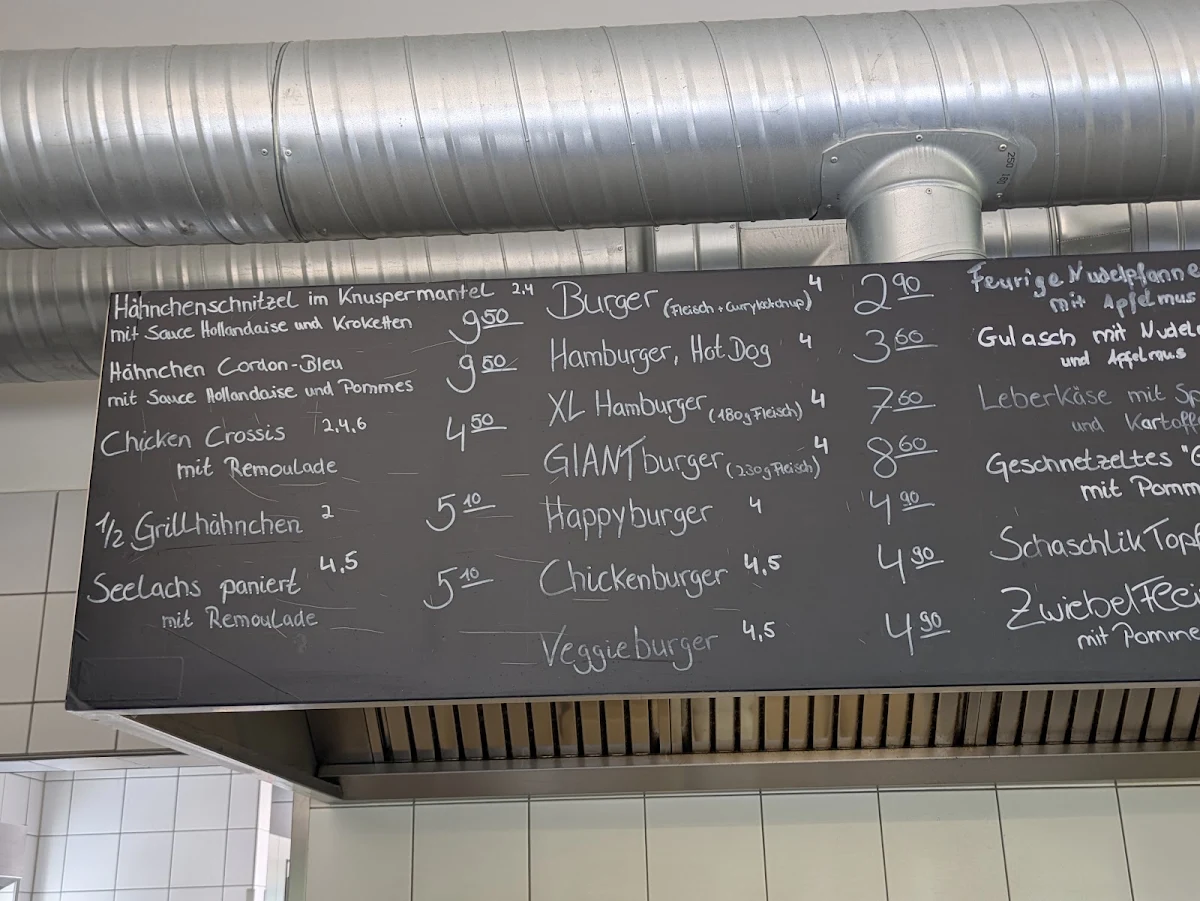 250 180
Hähnchenschnitzel im Knuspermantel 2,4
mit Sauce Hollandaise und Kroketten 9 50
Hähnchen Cordon-Bleu 9 50
mit Sauce Hollandaise und Pommes
Chicken Crossis 2,4,6 4 50
mit Remoulade
1/2 Grillhähnchen 2 5 10
Seelachs paniert 4,5 5 10
mit Remoulade
Burger (Fleisch + Curryketchup) 4 2 90
Hamburger, Hot Dog 4 3 60
XL Hamburger (180g Fleisch) 4 7 60
GIANTburger (230g Fleisch) 4 8 60
Happyburger 4 4 90
Chickenburger 4,5 4 90
Veggieburger 4,5 4 90
Feurige Nudelpfanne
mit Apfelmus
Gulasch mit Nudel
und Apfelmus
Leberkäse mit Sp
und Kartoff
Geschnetzeltes "G
mit Pomm
Schaschlik Topf
Zwiebelflei
mit Pomme